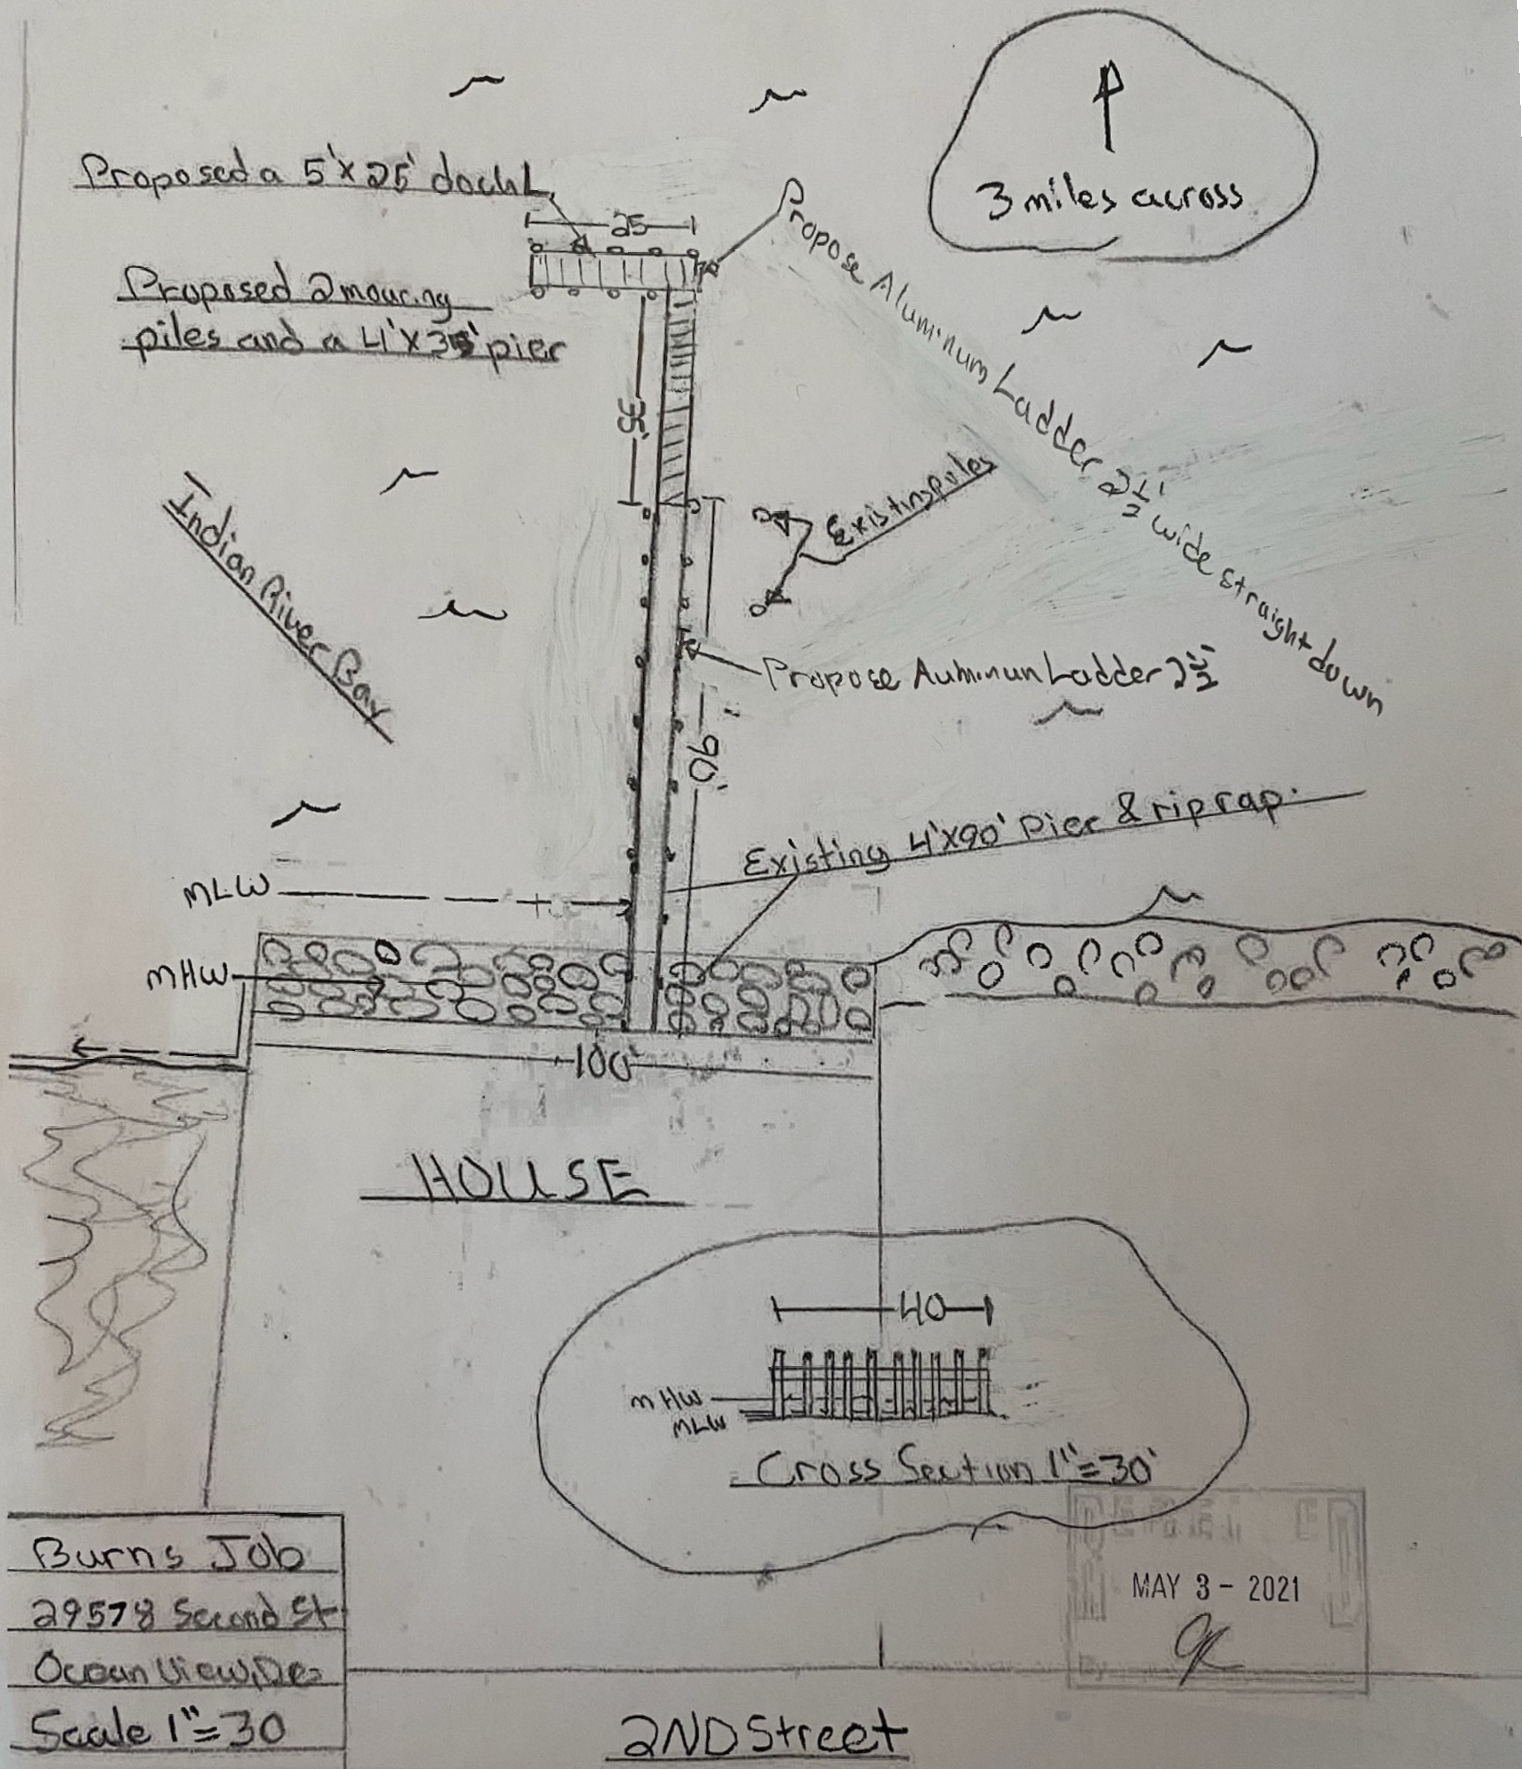 3 miles across
Proposed a 5'x25' dock L
25
Proposed 2 mouring
piles and a 4'x35' pier
Propose Aluminum Ladder 2½' wide straight down
35'
Existing poles
Indian River Bay
Propose Auminun Ladder 2½'
90'
Existing 4'x90' Pier & rip rap.
MLW
MHW
100'
HOUSE
40
MHW
MLW
Cross Section 1"=30'
MAY 3 - 2021
By
Burns Job
29578 Second St
Ocean View, De
Scale 1"=30
2ND Street